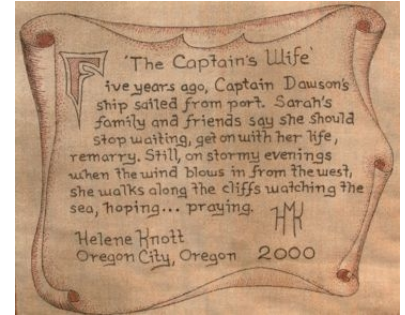 'The Captain's Wife'
Five years ago, Captain Dawson's
ship sailed from port. Sarah's
family and friends say she should
stop waiting, get on with her life,
remarry. Still, on stormy evenings
when the wind blows in from the west,
she walks along the cliffs watching the
sea, hoping... praying.
HMK
Helene Knott
Oregon City, Oregon 2000